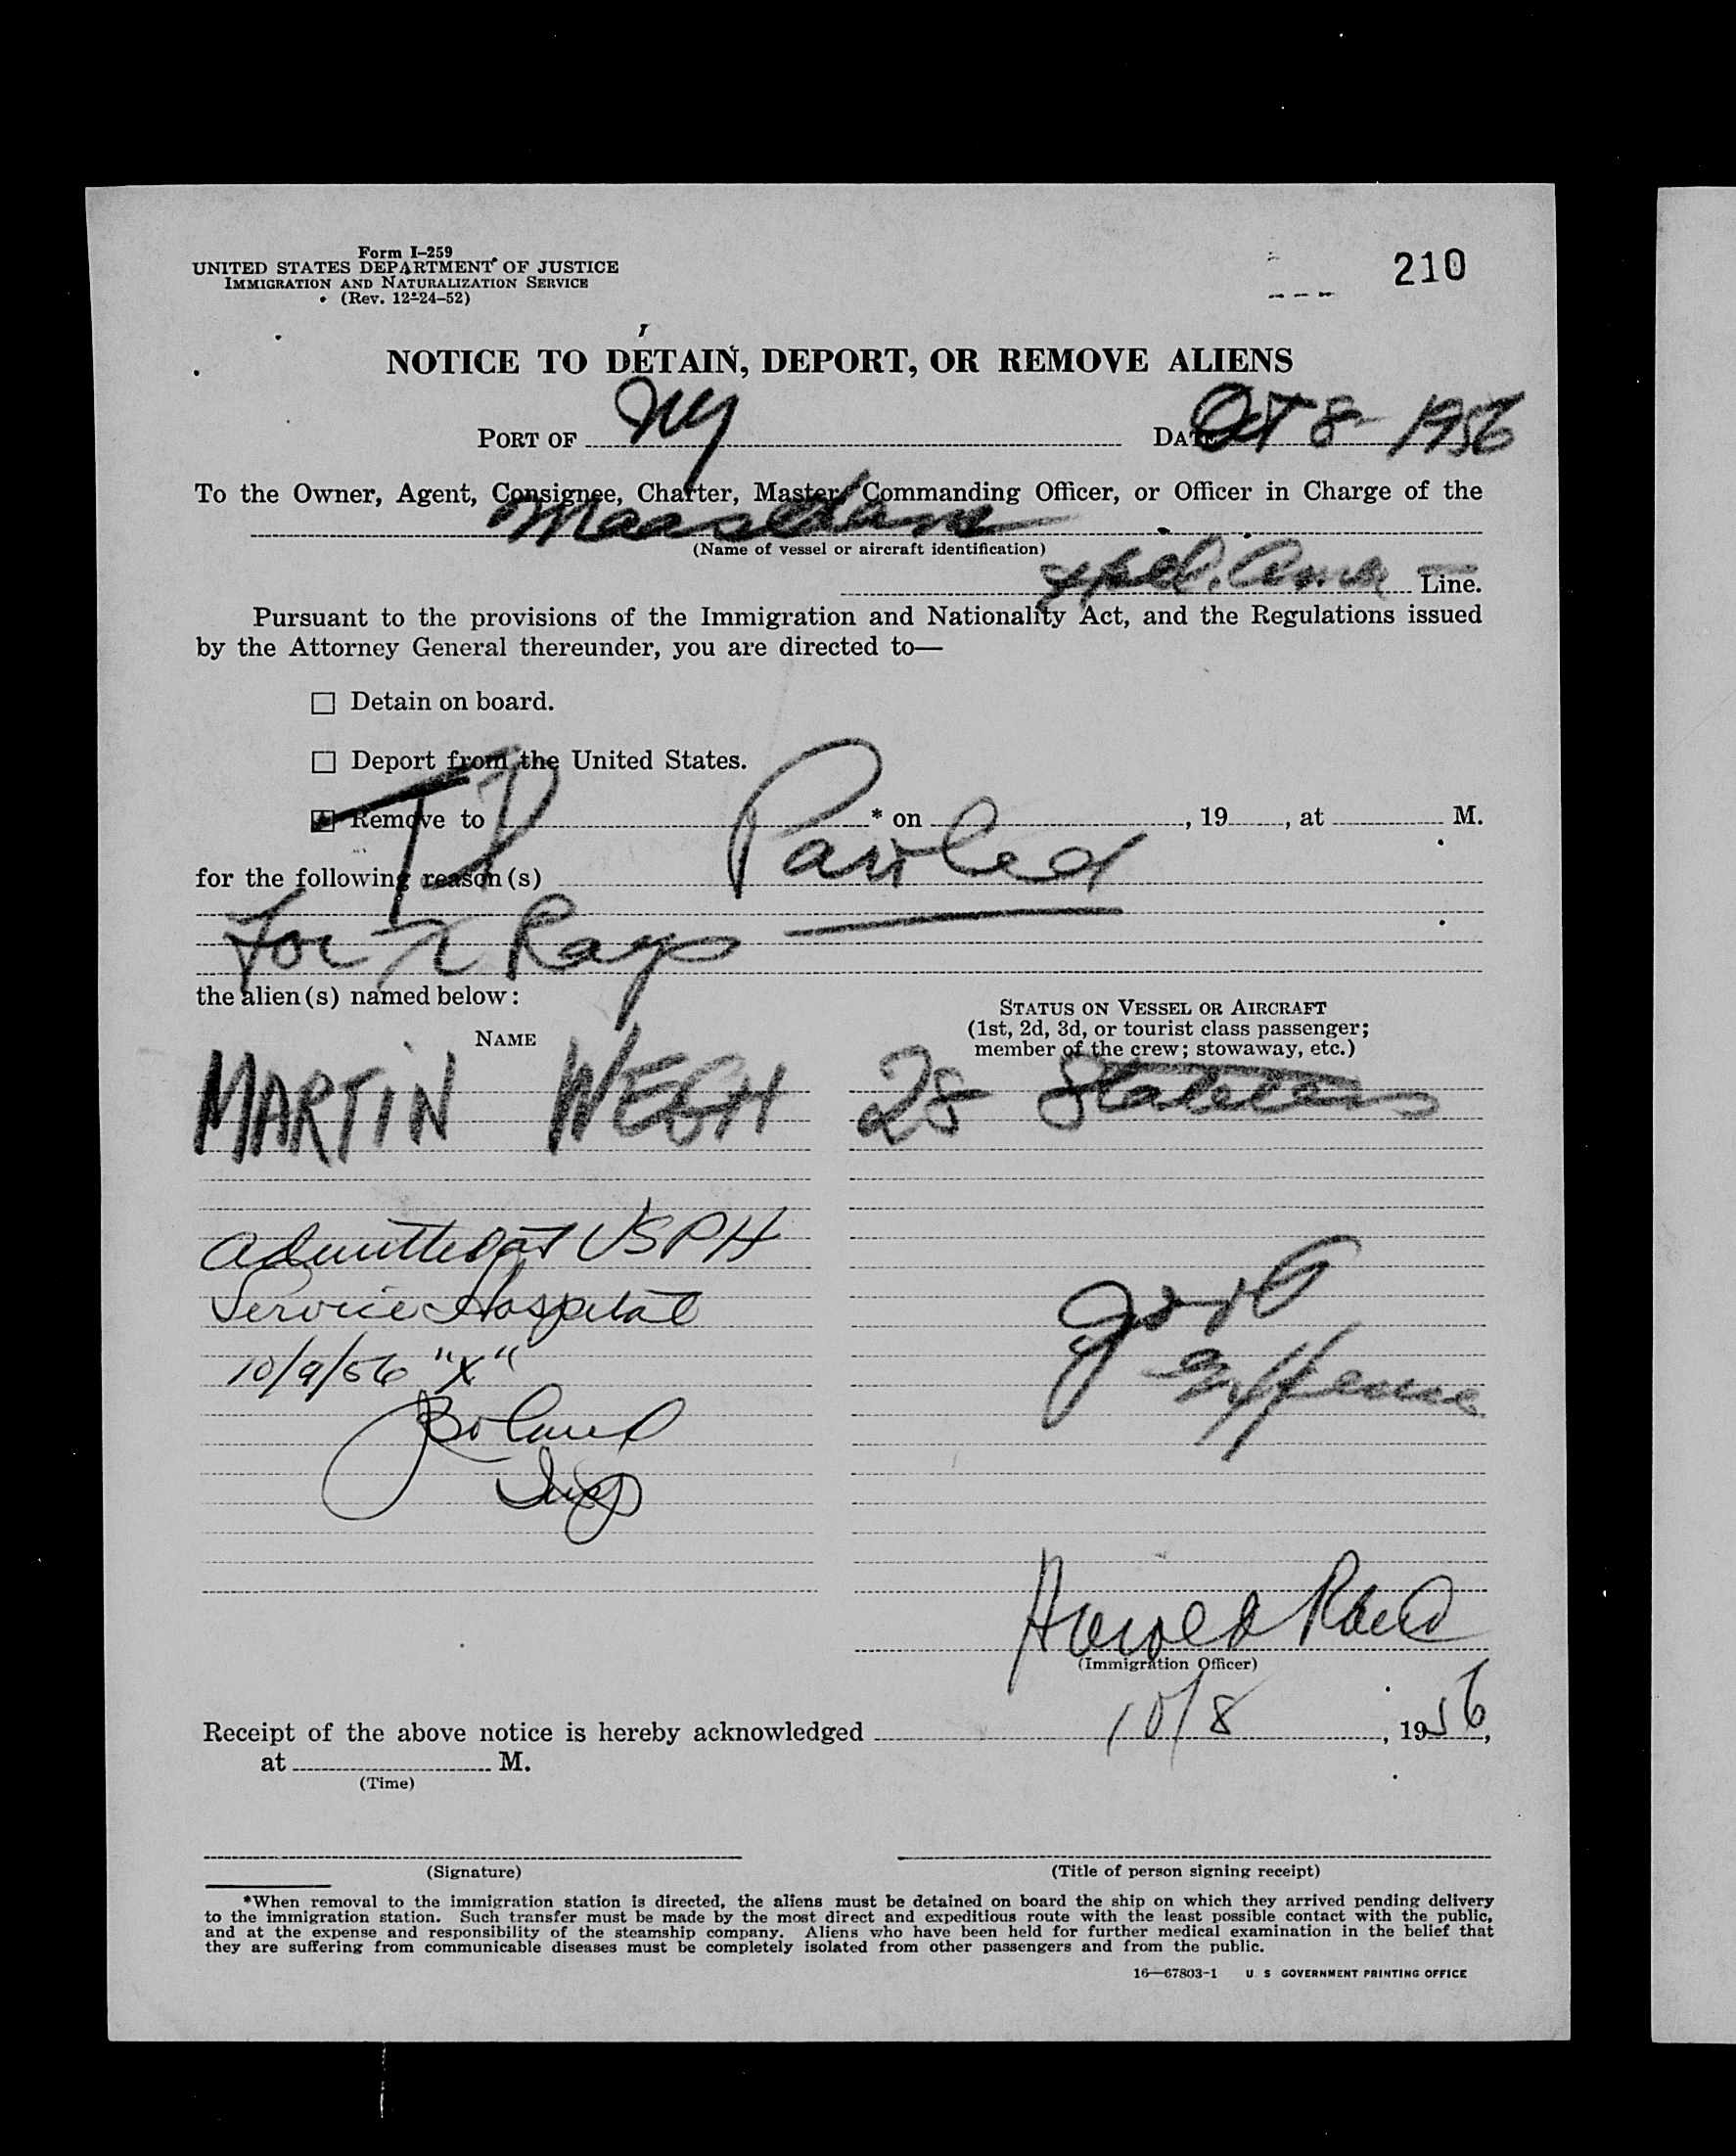 Form I-259
UNITED STATES DEPARTMENT OF JUSTICE
IMMIGRATION AND NATURALIZATION SERVICE
(Rev. 12-24-52)
210
NOTICE TO DETAIN, DEPORT, OR REMOVE ALIENS
PORT OF NY DATE Oct 8 1956
To the Owner, Agent, Consignee, Charter, Master, Commanding Officer, or Officer in Charge of the
Maasdam
(Name of vessel or aircraft identification)
Amer Line.
Pursuant to the provisions of the Immigration and Nationality Act, and the Regulations issued
by the Attorney General thereunder, you are directed to—
☐ Detain on board.
☐ Deport from the United States.
☒ Remove to * on , 19 , at M.
Paroled
for the following reason(s)
for X Rays
the alien(s) named below:
NAME
STATUS ON VESSEL OR AIRCRAFT
(1st, 2d, 3d, or tourist class passenger;
member of the crew; stowaway, etc.)
MARTIN 28 Stateless
Admitted at USPH
Service Hospital
10/9/56 "X"
Boland
Insp
Harold
(Immigration Officer)
Receipt of the above notice is hereby acknowledged 10/8, 1956,
at M.
(Time)
(Signature)
(Title of person signing receipt)
*When removal to the immigration station is directed, the aliens must be detained on board the ship on which they arrived pending delivery
to the immigration station. Such transfer must be made by the most direct and expeditious route with the least possible contact with the public,
and at the expense and responsibility of the steamship company. Aliens who have been held for further medical examination in the belief that
they are suffering from communicable diseases must be completely isolated from other passengers and from the public.
16—67803-1 U S GOVERNMENT PRINTING OFFICE